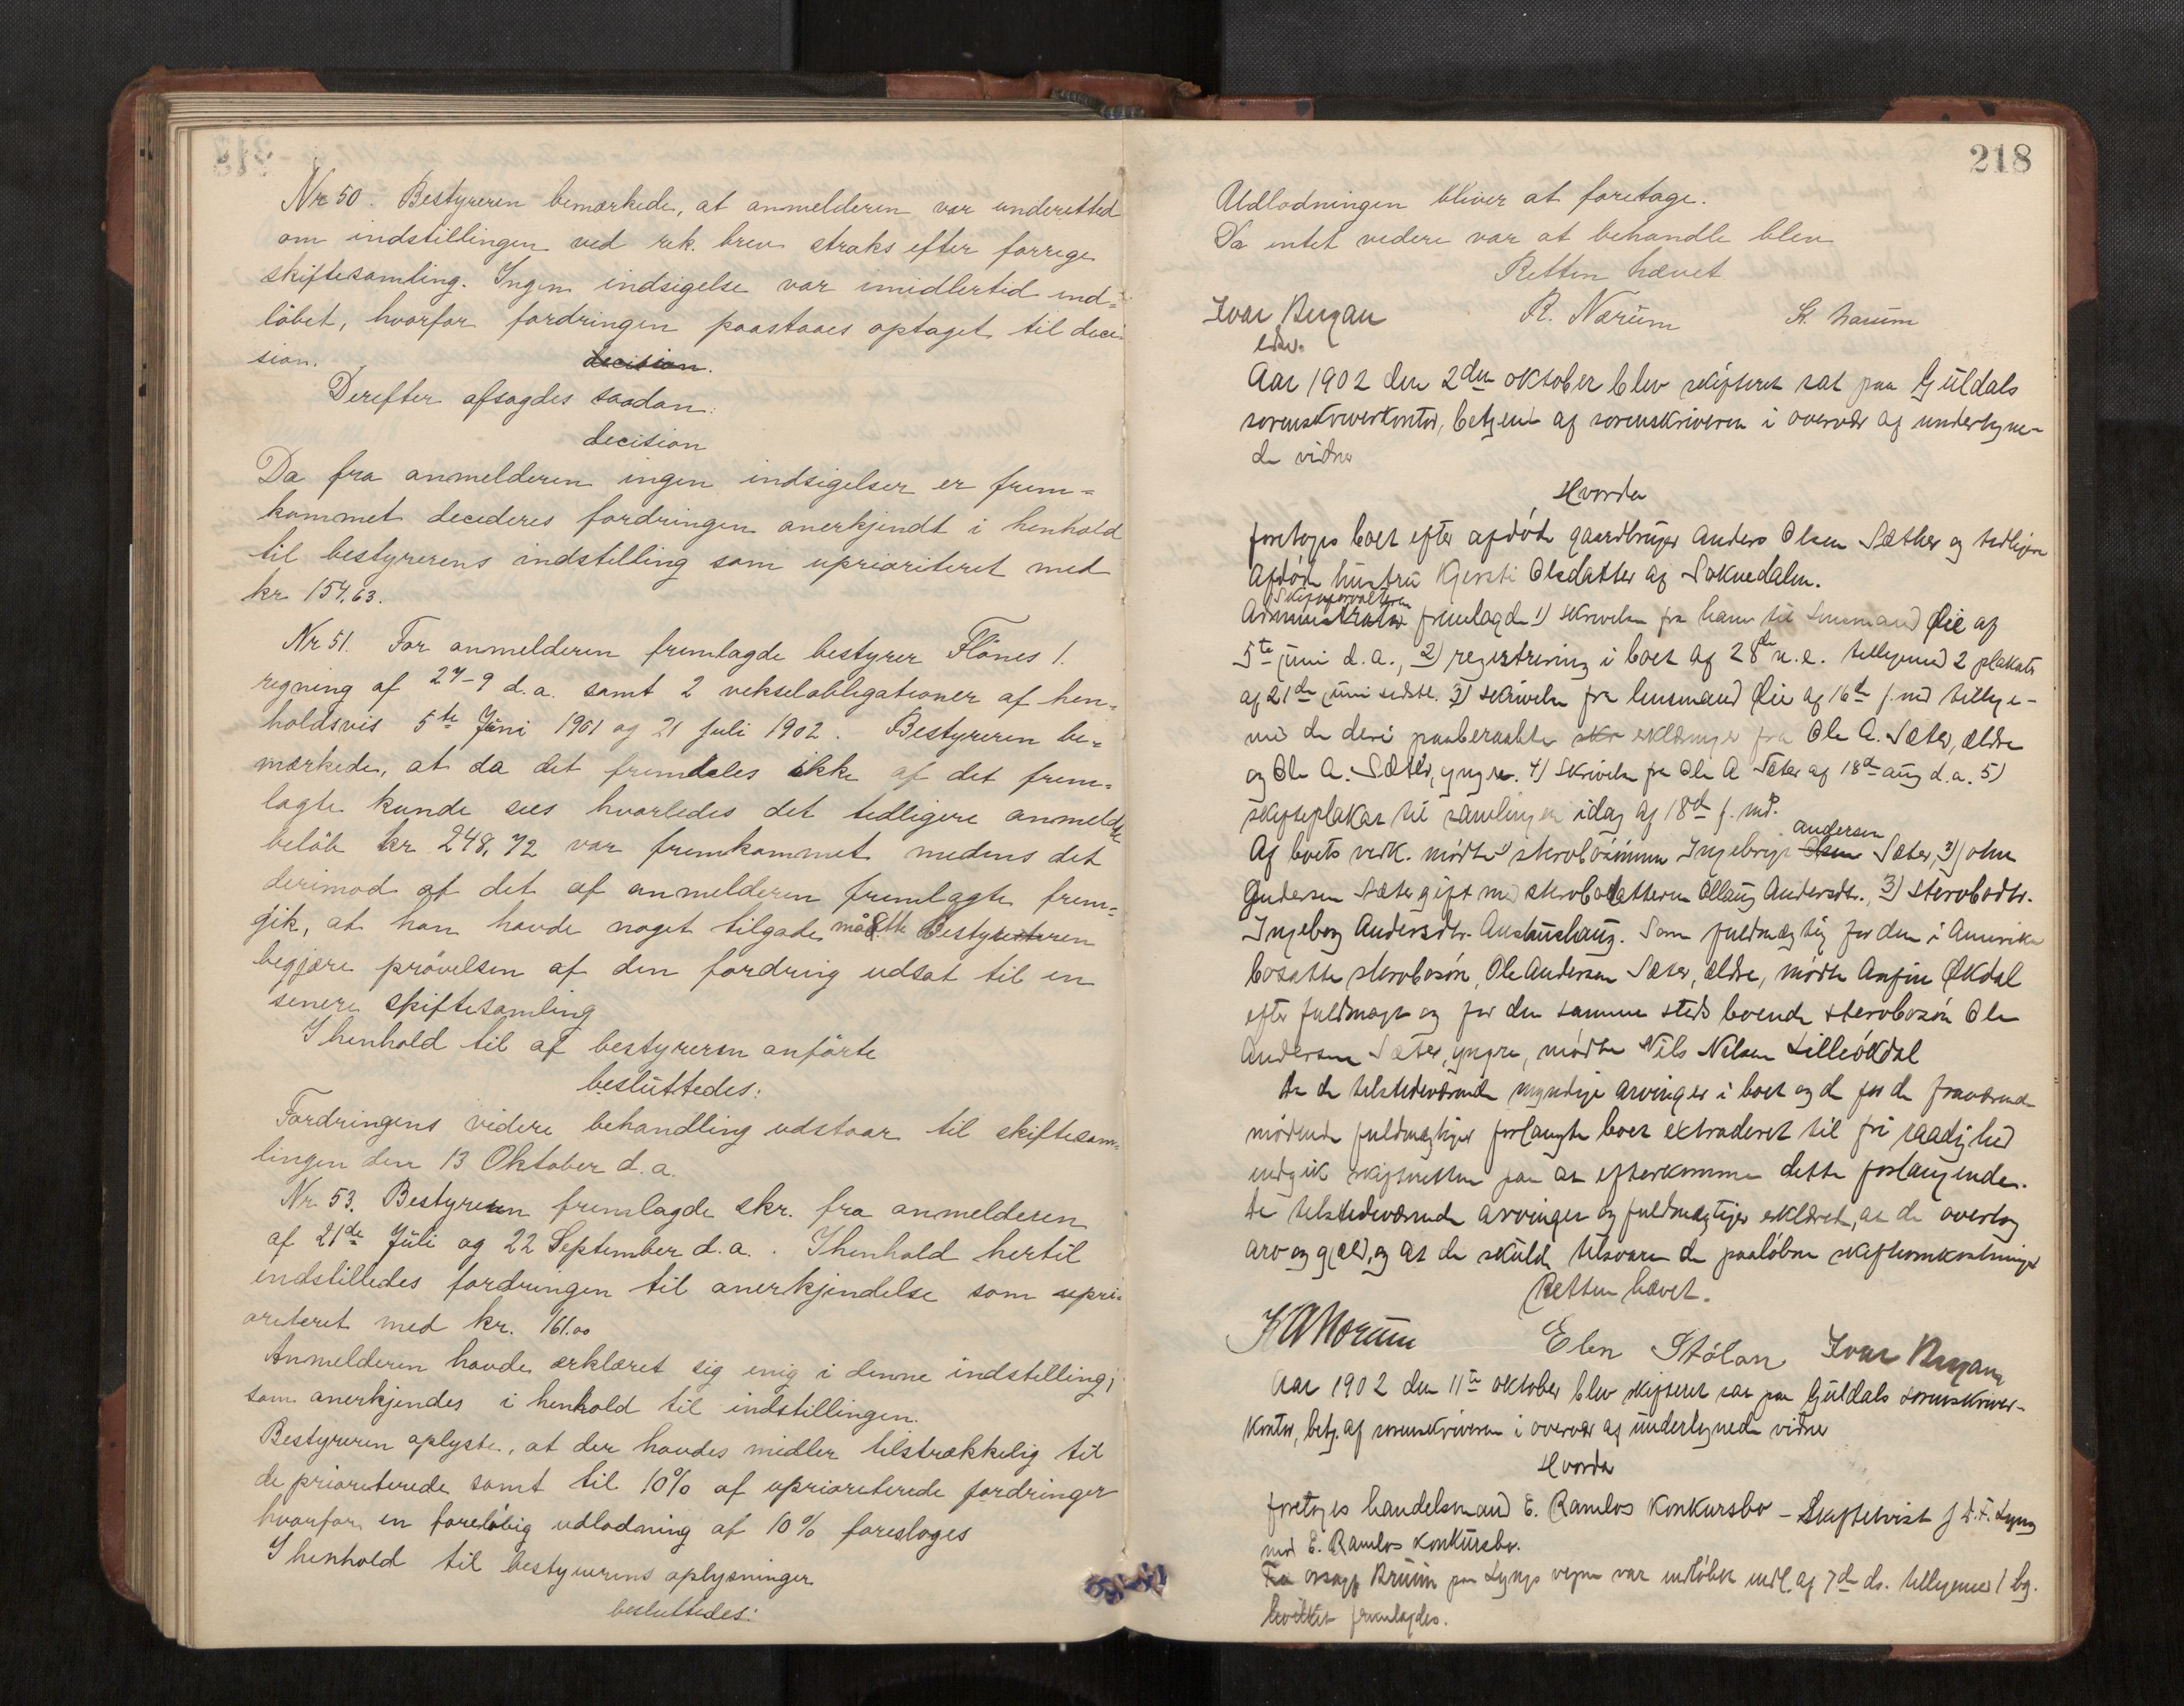 Nr 50. Bestyreren bemærkede, at anmelderen var underetted
om indstillingen ved rek. brev straks efter forrige
skiftesamling. Ingen indsigelse var imidlertid ind=
løbet, hvorfor fordringen paastaaes optaget til deci
sion. decision.
Derefter afsagdes saadan:
decision
Da fra anmelderen ingen indsigelser er frem=
kommet decideres fordringen anerkjendt i henhold
til bestyrerens indstilling som uprioriteret med
kr 154,63.
Nr 51. For anmelderen fremlagde bestyrer Flönes 1.
regning af 27-9 d.a. samt 2 vekselobligationer af hen=
holdsvis 5te Juni 1901 og 21 Juli 1902. Bestyreren be=
mærkede, at da det fremdeles ikke af det frem=
lagte kunde sees hvorledes det tidligere anmeldte
beløb kr 248,72 var fremkommet medens det
derimod af det af anmelderen fremlagte frem=
gik, at han havde noget tilgode måtte Bestyreren
begjære prøvelsen af den fordring udsat til en
senere skiftesamling
I henhold til af bestyreren anførte
besluttedes:
Fordringens videre behandling udstaar til skiftesam=
lingen den 13 Oktober d.a.
Nr. 53. Bestyreren fremlagde skr. fra anmelderen
af 21de Juli og 22 September d.a. . I henhold hertil
indstilledes fordringen til anerkjendelse som upri=
oriteret med kr. 161.00
Anmelderen havde erklæret sig enig i denne indstilling;
som anerkjendes i henhold til indstillingen.
Bestyreren oplyste, at der havdes midler tilstrækkelig til
de prioriterede samt til 10% af uprioriterede fordringer
hvorfor en foreløbig udlodning af 10% foresloges
I henhold til bestyrerens oplysninger
besluttedes:
218
Udlodningen bliver at foretage.
Da intet videre var at behandle blev
Retten hævet
Ivar Bergan R. Narum St. Narum
edsv.
Aar 1902 den 2den oktober blev skifteret sat paa Guldals
sorenskriverkontor, betjent af sorenskriveren i overvær af undertegne-
de vidner
Hvorda
foretoges boet efter afdøde gaardbruger Anders Olsen Sæther og tidligere
afdøde hustru Kjersti Olsdatter af Soknedalen.
Skifteforvalteren
Administrator fremlagde 1) skrivelse fra ham til lensmand Øie af
5te juni d.a., 2) registrering i boet af 28de n.e. tilligemed 2 plakater
af 21de juni sidstl. 3) skrivelse fra lensmand Øie af 16de f. md tillige-
med de deri paaberaabte skr erklæringer fra Ole A. Sæter, ældre
og Ole A. Sæter, yngre. 4) Skrivelse fra Ole A Sæter af 18de aug d.a. 5)
skifteplakat til samlingen idag af 18de f. md.
Andersen
Af boets vedk. mødte 1) stervbosønnen Ingebrigt Olsen Sæter, 2) John
Gundersen Sæter gift med stervbodatteren Ollaug Andersdtr., 3) stervbodtr.
Ingeborg Andersdtr. Aushushaug. Som fuldmægtig for den i Amerika
bosatte stervbosøn, Ole Andersen Sæter, ældre, mødte Anfin Økdal
efter fuldmagt og for den samme steds boende stervbosøn Ole
Andersen Sæter, yngre, mødte Nils Nilsen Lilleøkdal
Da de tilstedeværende myndige arvinger i boet og de for de fraværende
mødende fuldmægtiger forlangte boet extraderet til fri raadighed
indgik skifteretten paa at efterkomme dette forlangende.
De tilstedeværende arvinger og fuldmægtiger erklæret, at de overtog
arv og gjæld, og at de skulde tilsvare de paaløbne skifteomkostninger
Retten hævet.
Narum Elen Stölan Ivar Bergan
Aar 1902 den 11te oktober blev skifteret sat paa Guldals sorenskriver-
kontor, betj. af sorenskriveren i overvær af undertegnede vidner
Hvorda
foretoges handelsmand E. Ramlos konkursbo – Skiftetvist f D. F. Lyng
mod E. Ramlos konkursbo.
Fra orsagf Bruun paa Lyngs vegne var indløbet indl. af 7de ds. tilligemed 1 bg.
hvilket fremlagdes.